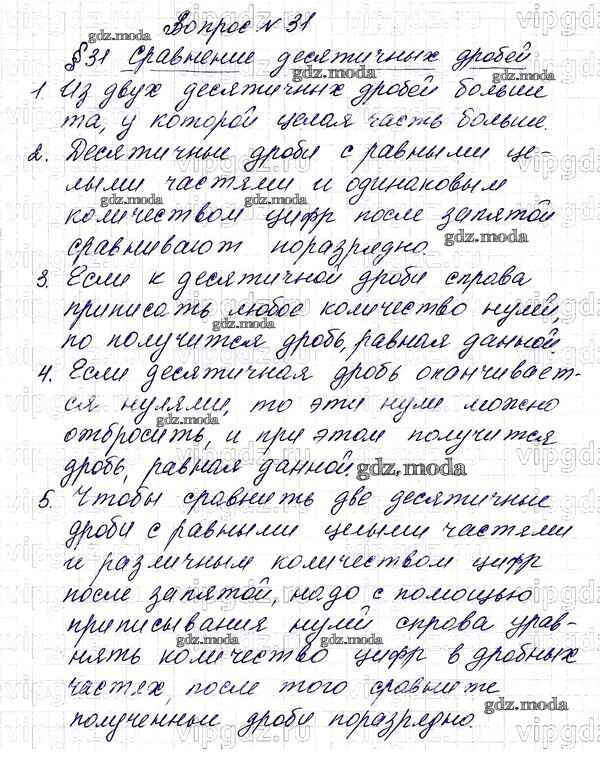 Вопрос № 31
§ 31 Сравнение десятичных дробей
1. Из двух десятичных дробей больше
та, у которой целая часть больше.
2. Десятичные дроби с равными це-
лыми частями и одинаковым
количеством цифр после запятой
сравнивают поразрядно.
3. Если к десятичной дроби справа
приписать любое количество нулей,
то получится дробь, равная данной.
4. Если десятичная дробь оканчивает-
ся нулями, то эти нули можно
отбросить, и при этом получится
дробь, равная данной.
5. Чтобы сравнить две десятичные
дроби с равными целыми частями
и различным количеством цифр
после запятой, надо с помощью
приписывания нулей справа урав-
нять количество цифр в дробных
частях, после того сравните
полученные дроби поразрядно.
gdz.moda
vipgdz.ru